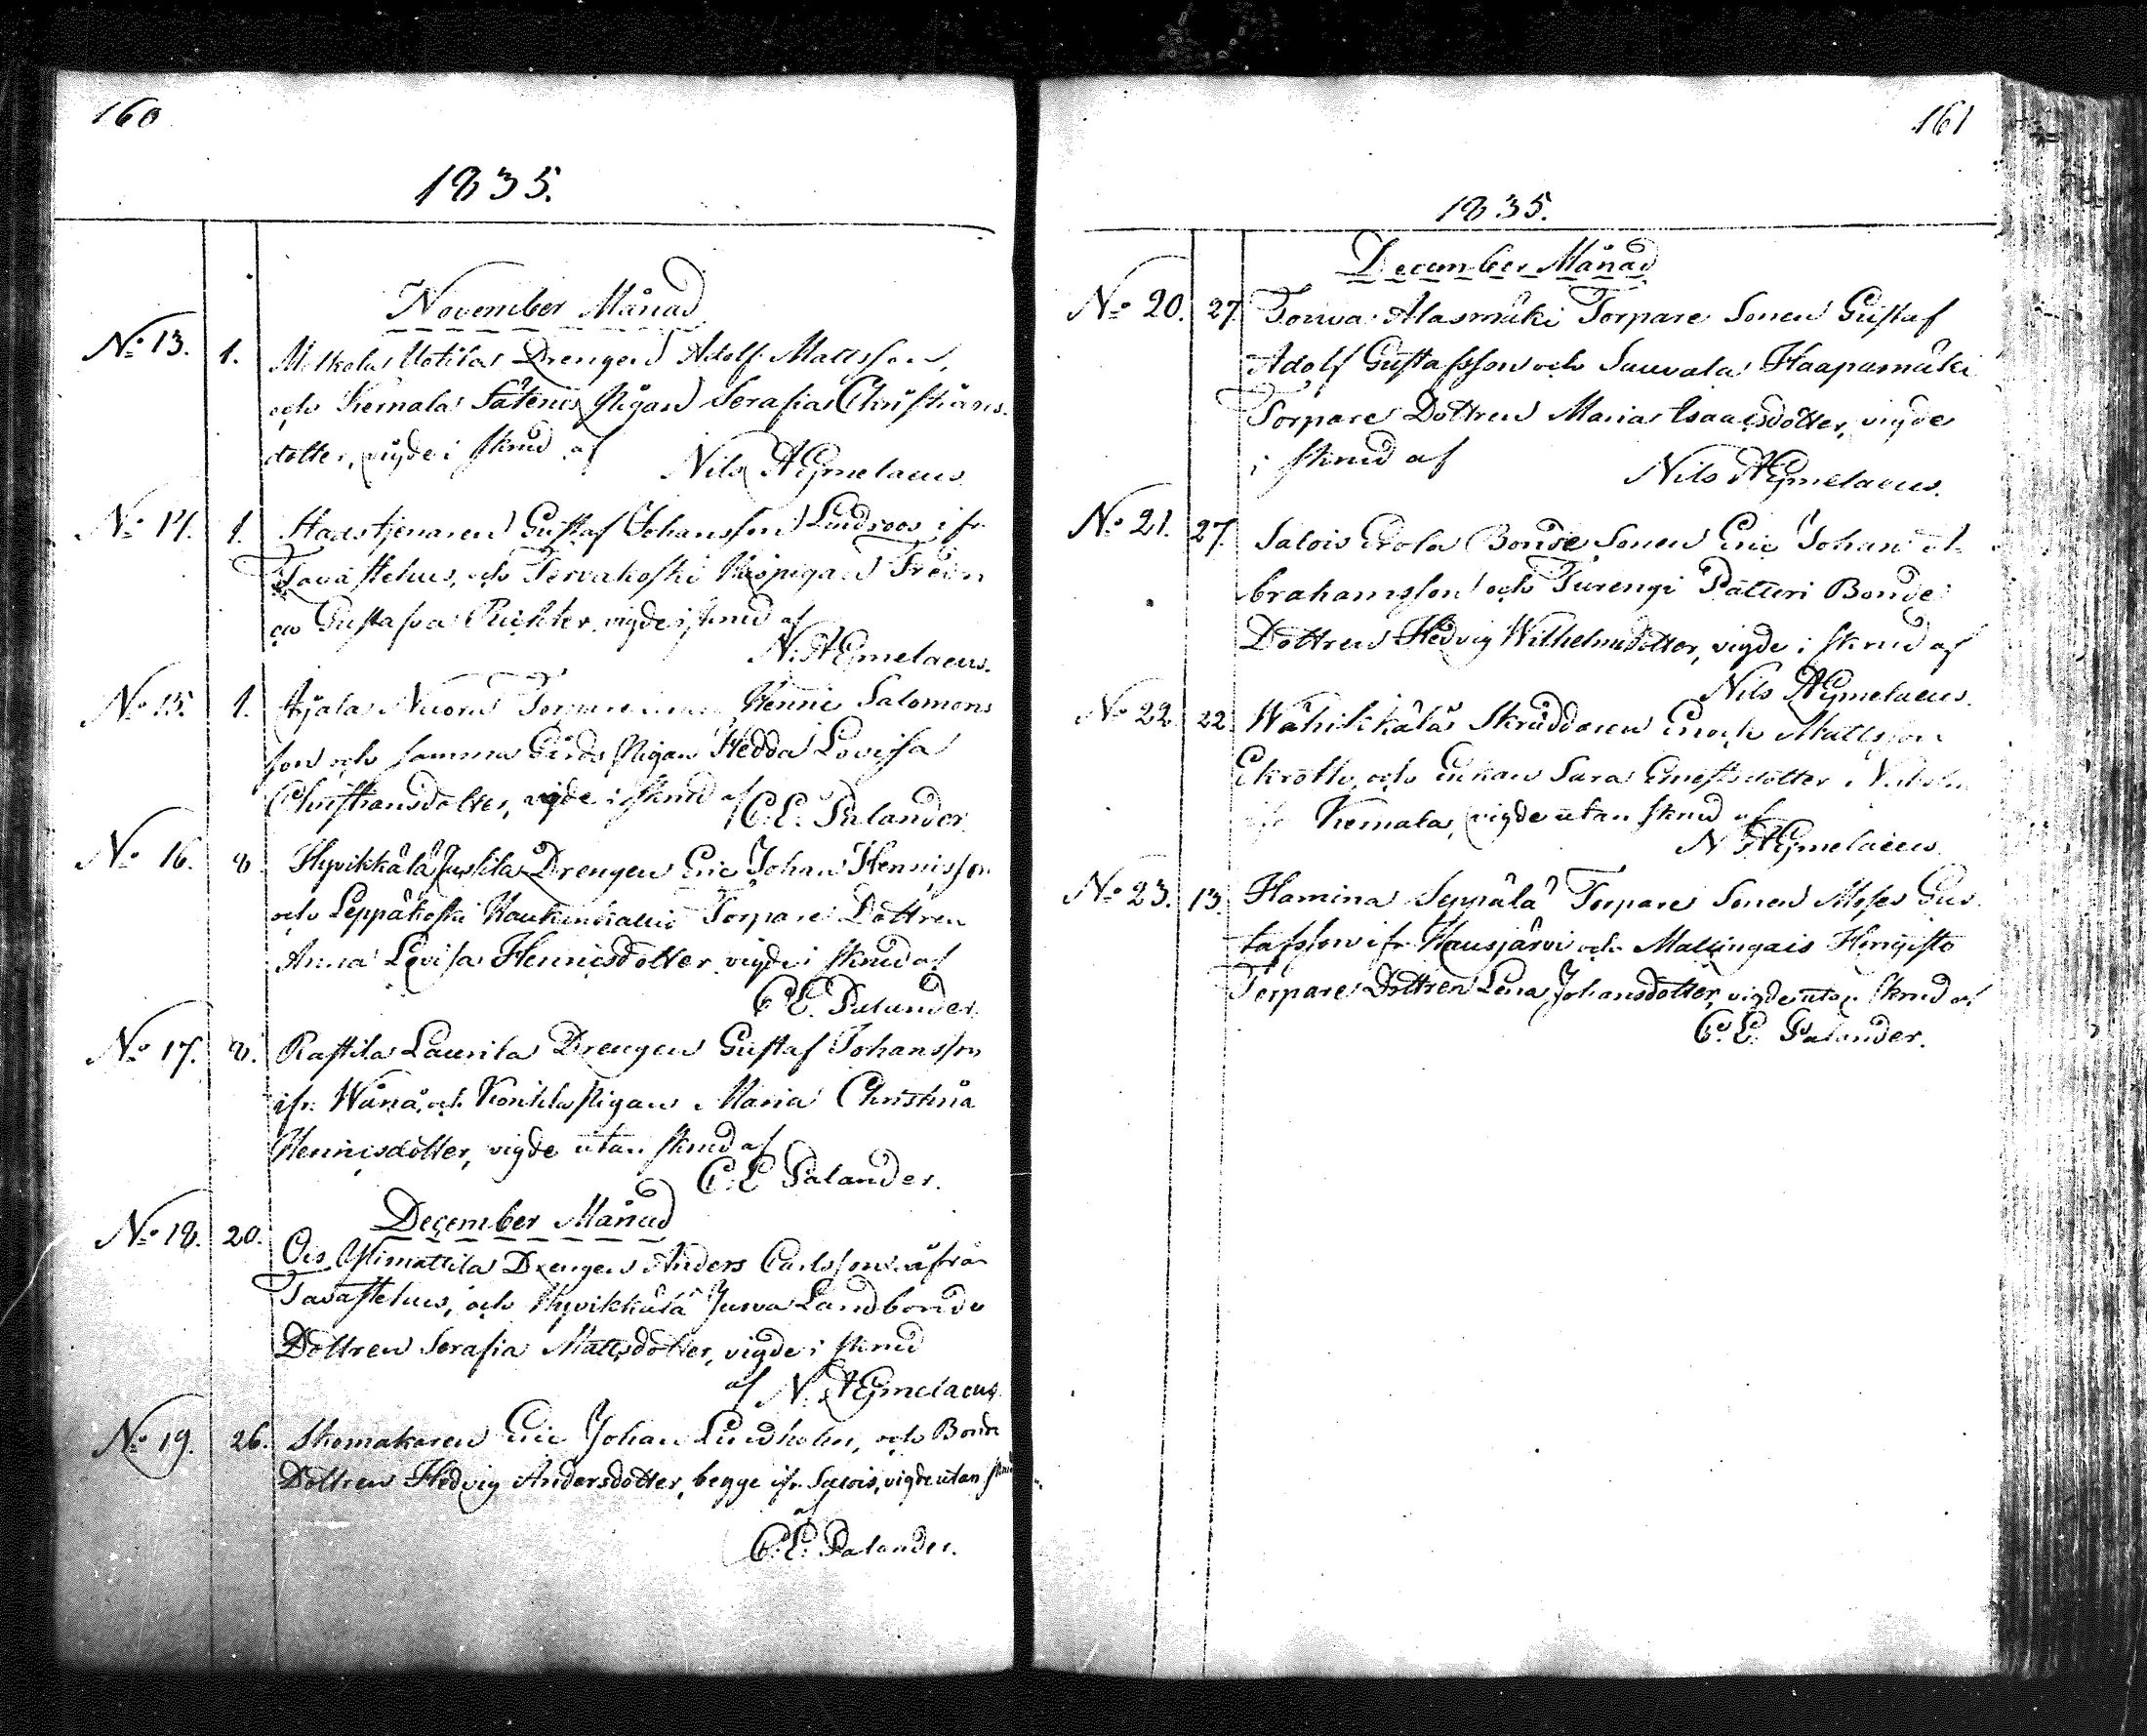 160
1835.
November Månad
No 13. 1. Uotila Drengen Adolf Mattsson,
och Kernala Säteris Pigan Serafia Christians-
dotter, vigde i skrud af
Nils Aejmelaeus
No 14. 1. Stadstjenaren Gustaf Johansson Lindroos ifr.
Tavastehus, och Tervakoski Pigan
Gustafva Richter, vigde i skrud af
N. Aejmelaeus.
No 15. 1. Nuoru Henric Salomons
son och samma Gårds Pigan Hedda Lovisa
Christiansdotter, vigde i skrud af
C. E. Palander.
No 16. 8. Hyvikkälä Jussila Drengen Eric Johan Henricsson
och Leppäkoski Torpare Dottren
Anna Lovisa Henricsdotter, vigde i skrud af
C. E. Palander.
No 17. 8. Rastila Laurila Drengen Gustaf Johansson
ifr. Wånå, och Konttila Pigan Maria Christina
Henricsdotter, vigde utan skrud af
C. E. Palander.
December Månad
No 18. 20. Ois Ylimattila Drengen Anders Carlsson ifrån
Tavastehus, och Hyvikkälä Juwa Landbonde
Dottren Serafia Mattsdotter, vigde i skrud
af N. Aejmelaeus.
No 19. 26. Skomakaren Eric Johan Lindholm, och Bonde
Dottren Hedvig Andersdotter, begge ifr. Salois, vigde utan skrud
af
C. E. Palander.
161
1835.
December Månad
No 20. 27. Alasmäki Torpare Sonen Gustaf
Adolf Gustafsson och Sauvala Haapamäki
Torpare Dottren Maria Isaacsdotter, vigde
i skrud af
Nils Aejmelaeus.
No 21. 27. Salois Erola Bonde Sonen Eric Johan A-
brahamsson och Turengi Pätteri Bonde
Dottren Hedvig Wilhelmsdotter, vigde i skrud af
Nils Aejmelaeus.
No 22. 22. Wähikkälä Skräddaren Enoch Mattsson
Ekroth, och Enkan Sara Ernestsdotter
ifr. Kernala, vigde utan skrud af
N. Aejmelaeus.
No 23. 13. Hamina Seppälä Torpare Sonen Moses Gus-
tafsson ifr. Hausjärvi och Mallingais Hongisto
Torpare Dottren Lena Johansdotter, vigde utan skrud af
C. E. Palander.